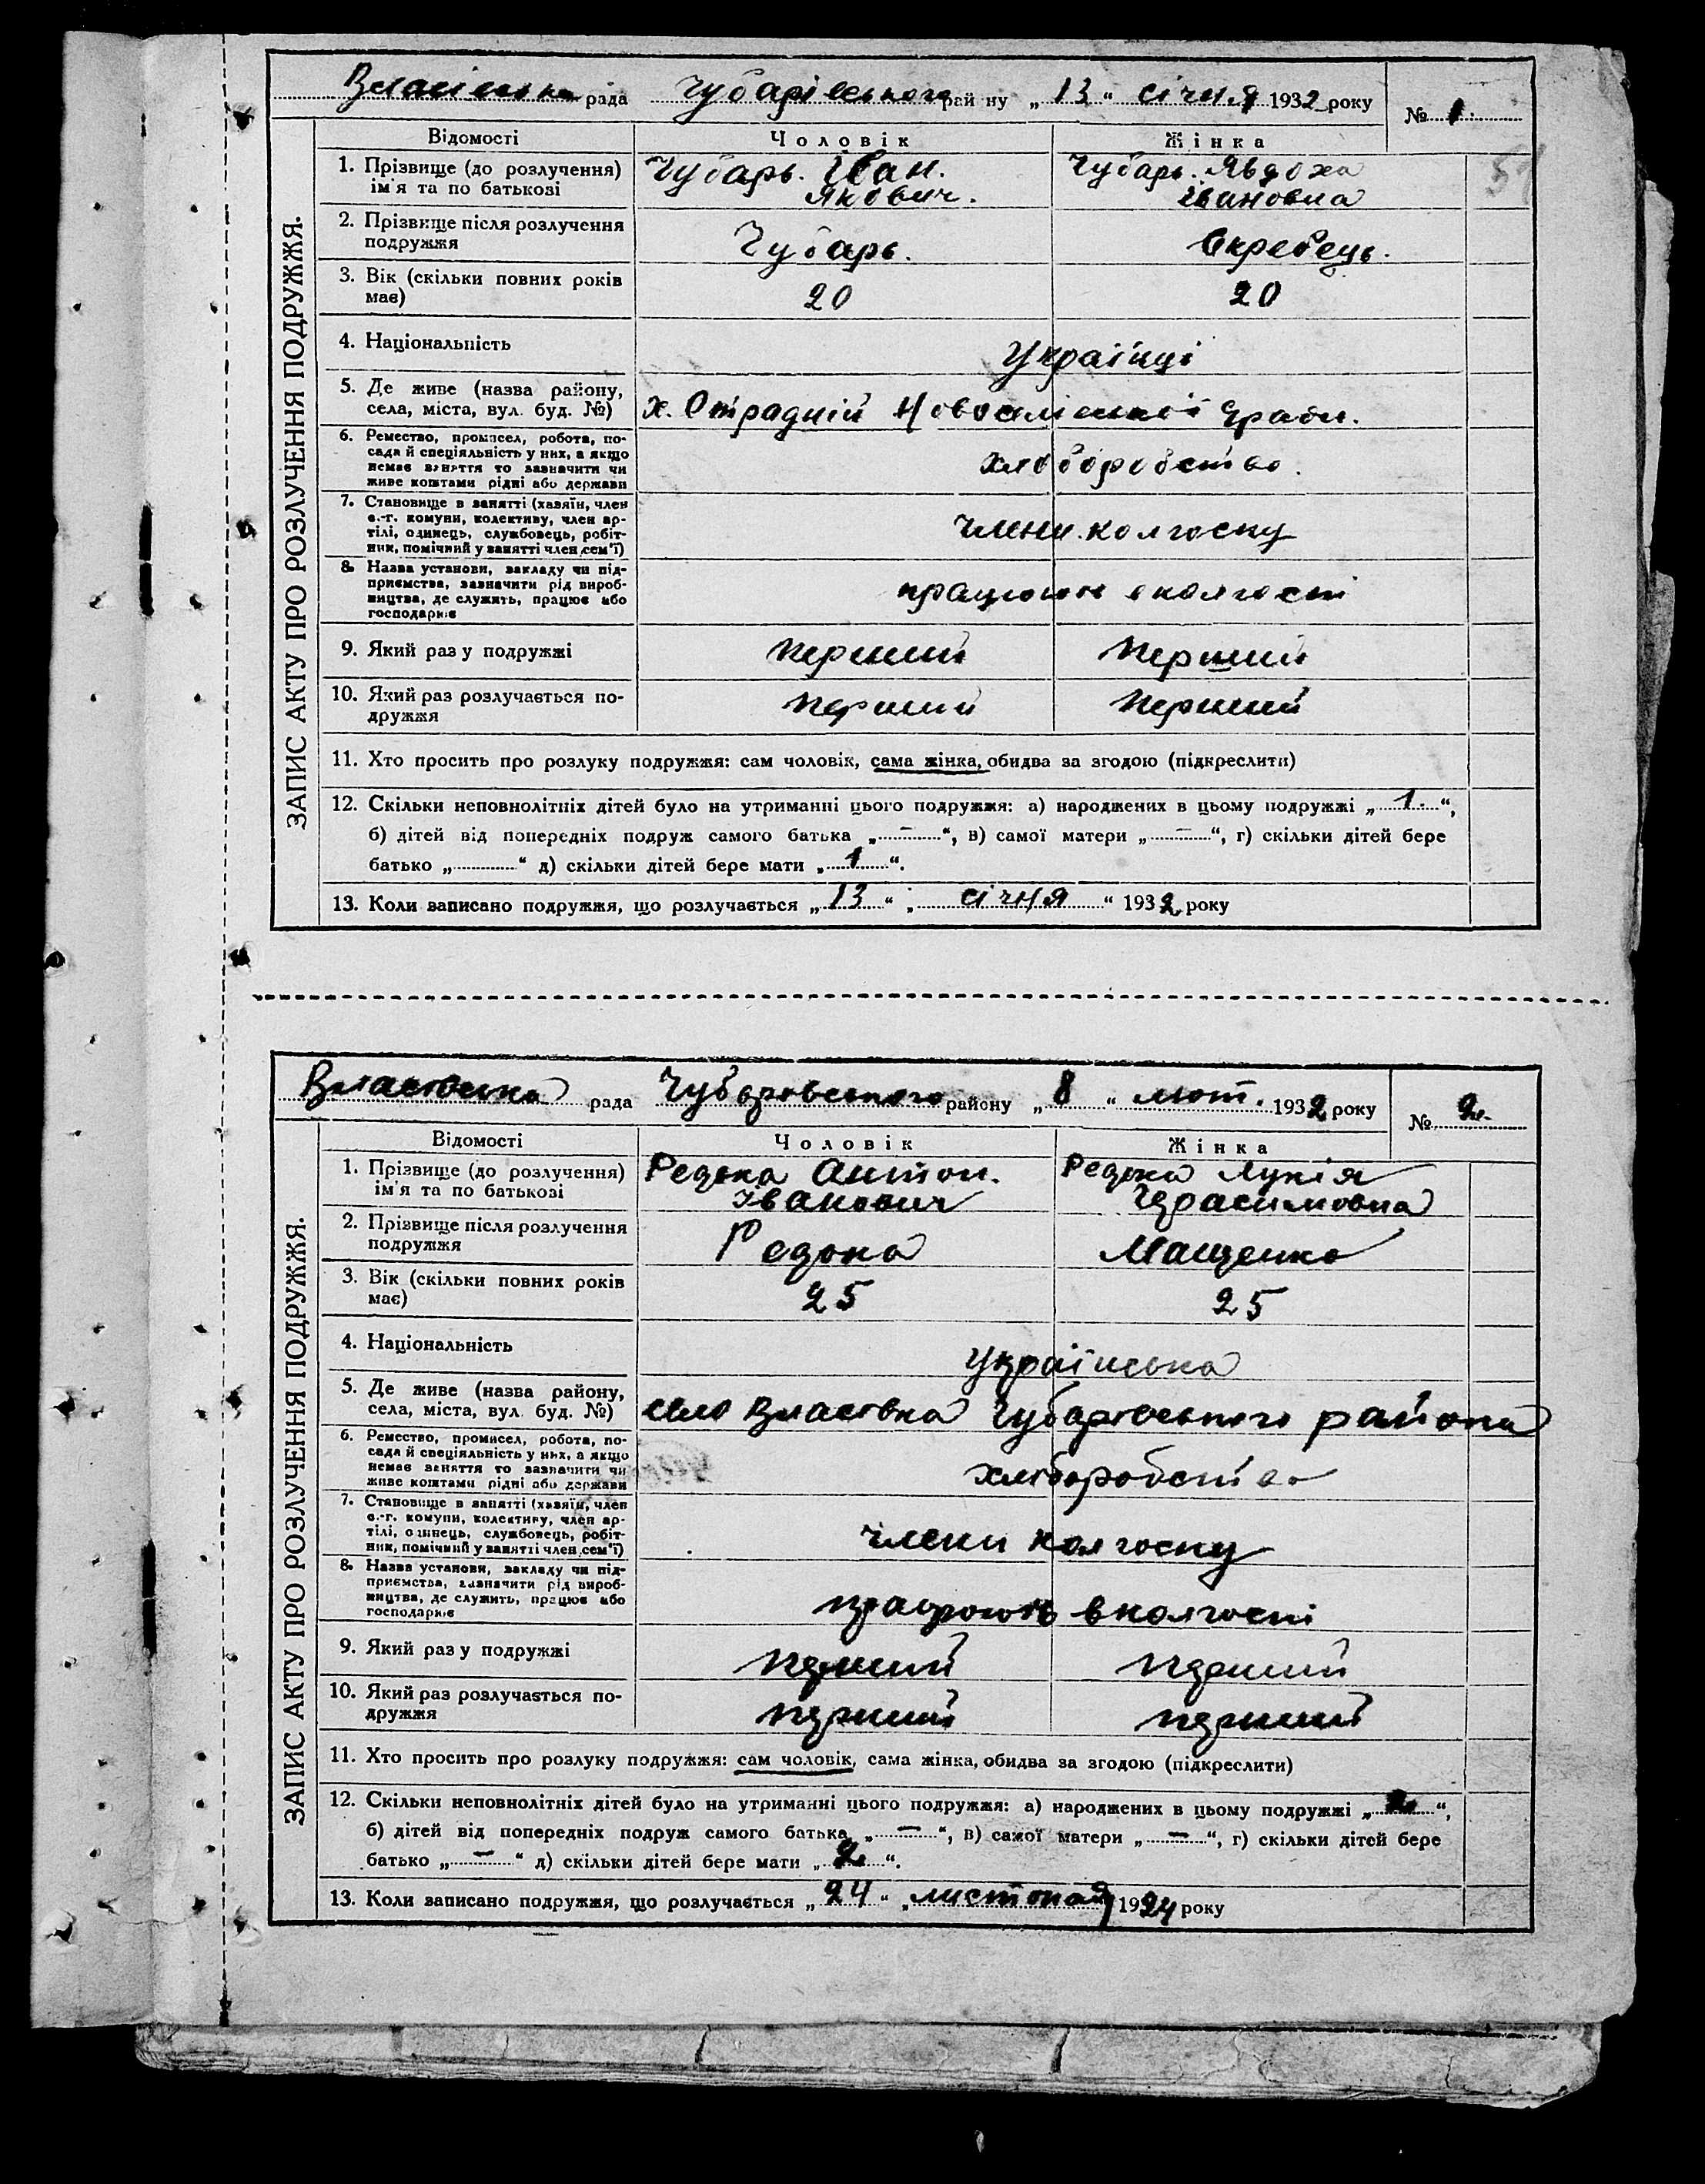 Власівська рада Чубарівського району „13“ січня 1932 року № 1.
ЗАПИС АКТУ ПРО РОЗЛУЧЕННЯ ПОДРУЖЖЯ.
Відомості Чоловік Жінка
1. Прізвище (до розлучення) Чубарь. Іван. Чубарь. Явдоха
ім'я та по батькові Якович. Івановна
2. Прізвище після розлучення
подружжя Чубарь. Скребець.
3. Вік (скільки повних років
має) 20 20
4. Національність Українці
5. Де живе (назва району,
села, міста, вул. буд. №) х. Отрадній
6. Ремество, промисел, робота, по-
сада й спеціяльність у них, а якщо
немає заняття то зазначити чи
живе коштами рідні або держави хліборобство.
7. Становище в занятті (хазяїн, член
с.-г. комуни, колективу, член ар-
тілі, одинець, службовець, робіт-
ник, помічний у занятті член сем'ї) члени колгоспу
8. Назва установи, закладу чи під-
приємства, зазначити рід вироб-
ництва, де служить, працює або
господарює працюють в колгоспі
9. Який раз у подружжі перший перший
10. Який раз розлучається по-
дружжя перший перший
11. Хто просить про розлуку подружжя: сам чоловік, сама жінка, обидва за згодою (підкреслити)
12. Скільки неповнолітніх дітей було на утриманні цього подружжя: а) народжених в цьому подружжі „1.“,
б) дітей від попередніх подруж самого батька „—“, в) самої матери „—“, г) скільки дітей бере
батько „ “ д) скільки дітей бере мати „1“.
13. Коли записано подружжя, що розлучається „13“ „січня“ 1932 року
Власовська рада Чубаровського району „8“ лют. 1932 року № 2.
ЗАПИС АКТУ ПРО РОЗЛУЧЕННЯ ПОДРУЖЖЯ.
Відомості Чоловік Жінка
1. Прізвище (до розлучення) Редока Антон. Редока Лукія
ім'я та по батькові Іванович Герасимовна
2. Прізвище після розлучення
подружжя Редока Мащенко
3. Вік (скільки повних років
має) 25 25
4. Національність Українська
5. Де живе (назва району,
села, міста, вул. буд. №) село Власовка Чубаровського района
6. Ремество, промисел, робота, по-
сада й спеціяльність у них, а якщо
немає заняття то зазначити чи
живе коштами рідні або держави хліборобство
7. Становище в занятті (хазяїн, член
с.-г. комуни, колективу, член ар-
тілі, одинець, службовець, робіт-
ник, помічний у занятті член сем'ї) члени колгоспу
8. Назва установи, закладу чи під-
приємства, зазначити рід вироб-
ництва, де служить, працює або
господарює працюють в колгоспі
9. Який раз у подружжі перший перший
10. Який раз розлучається по-
дружжя перший перший
11. Хто просить про розлуку подружжя: сам чоловік, сама жінка, обидва за згодою (підкреслити)
12. Скільки неповнолітніх дітей було на утриманні цього подружжя: а) народжених в цьому подружжі „2“,
б) дітей від попередніх подруж самого батька „—“, в) самої матери „—“, г) скільки дітей бере
батько „—“ д) скільки дітей бере мати „2“.
13. Коли записано подружжя, що розлучається „24“ „листопад 1924 року